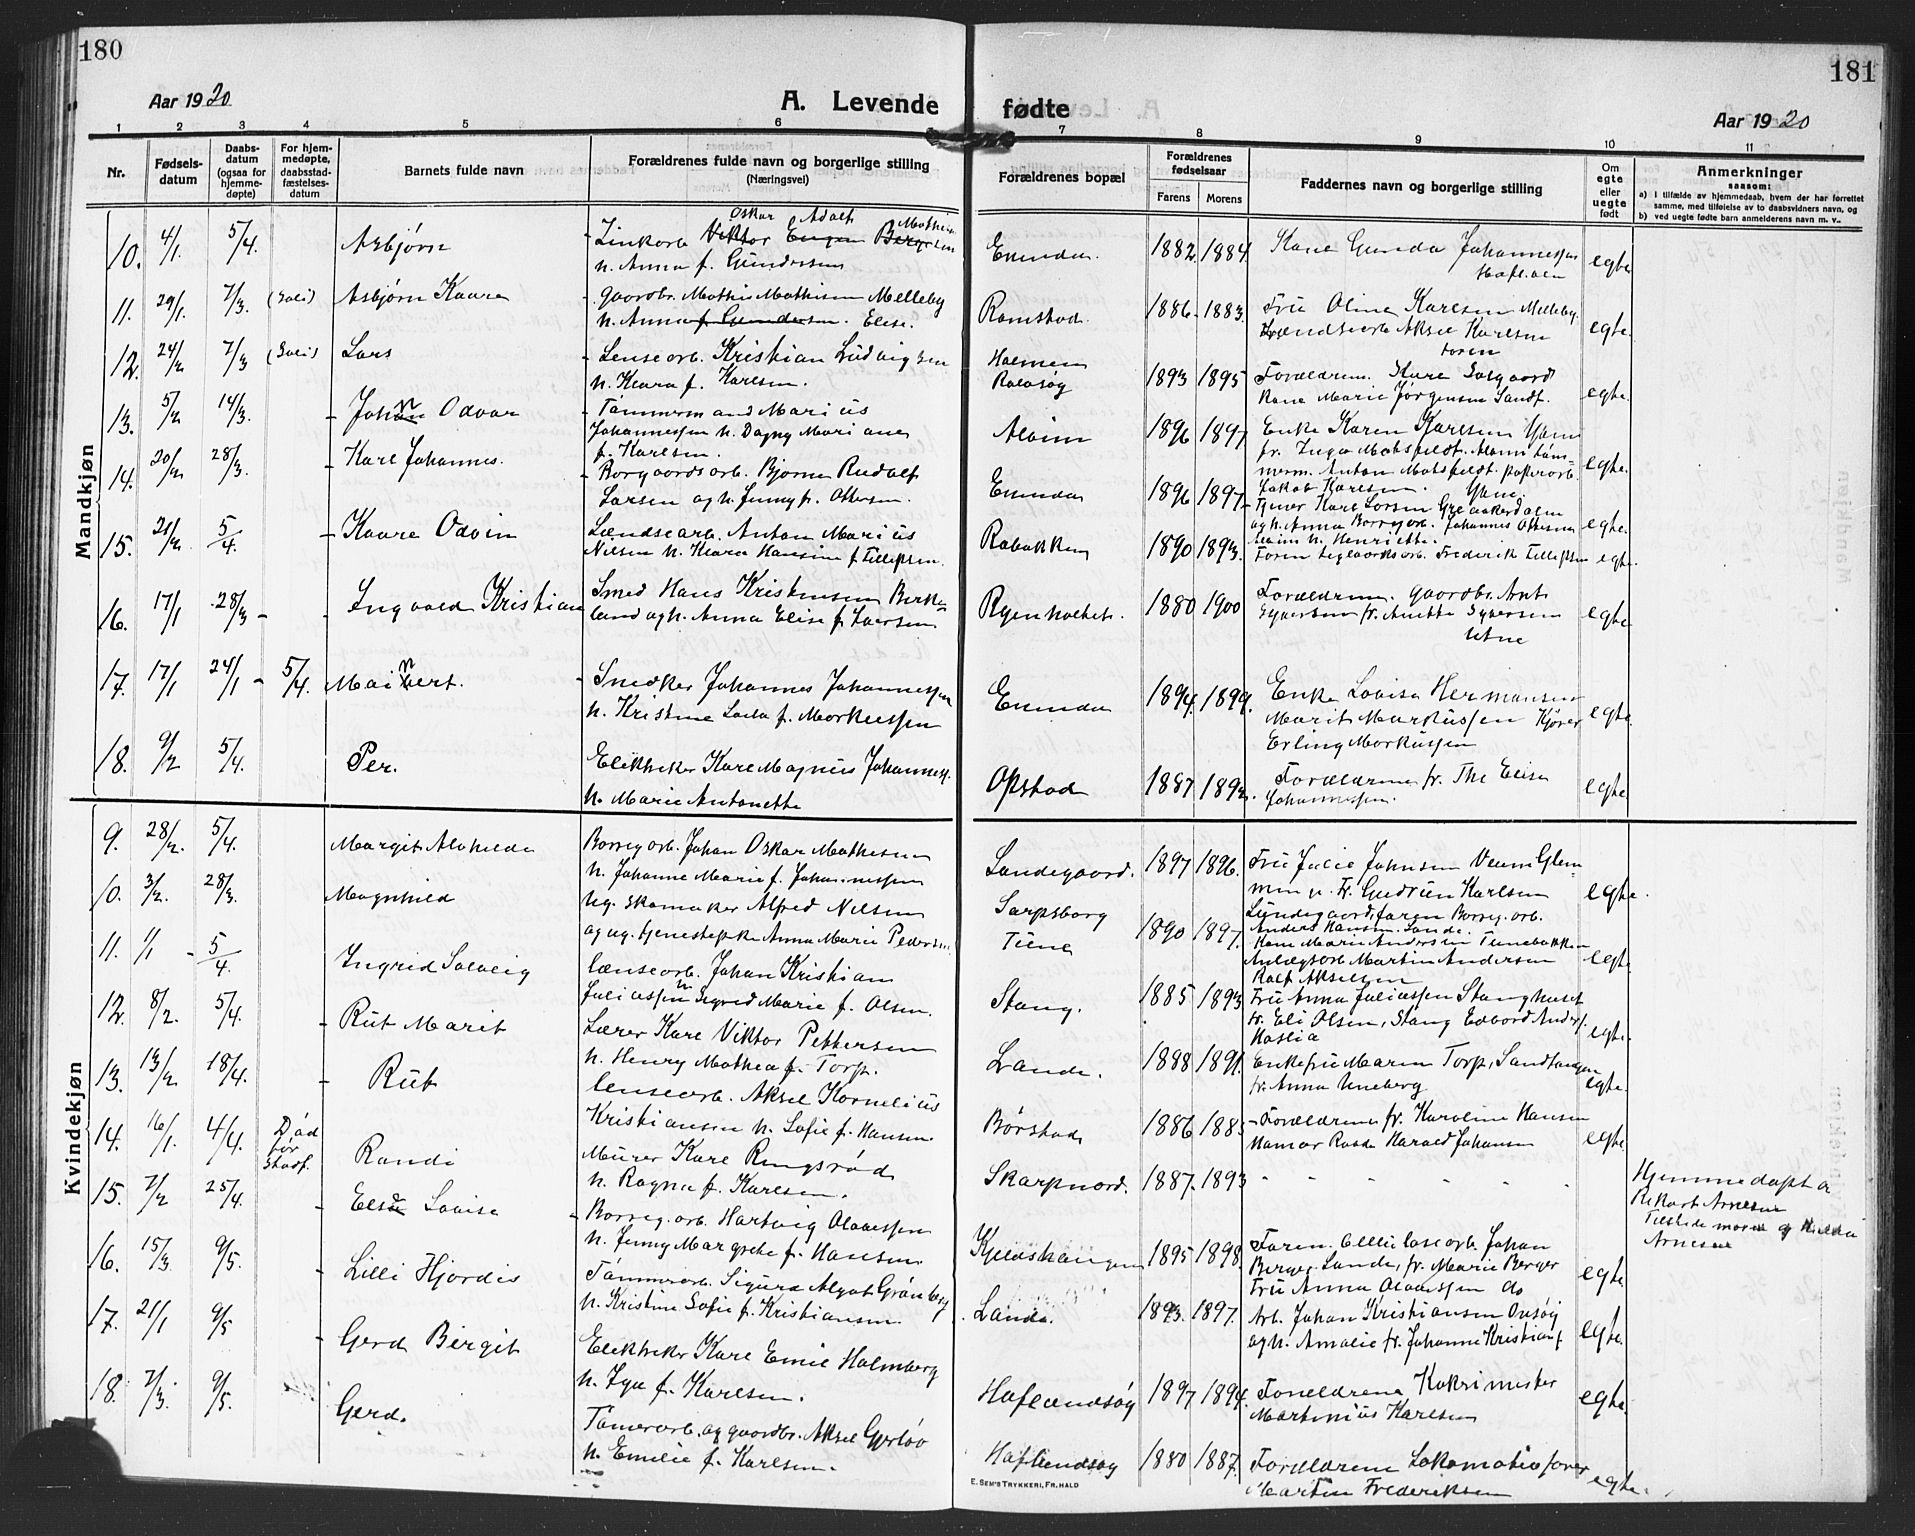 180
181
Aar 1920
A. Levende fødte
Aar 1920
1 2 3 4 5 6 7 8 9 10 11
Nr.
Fødsels-
datum
Daabs-
datum
(ogsaa for
hjemme-
døpte)
For hjem-
medøpte,
daabsstad-
fæstelses-
datum
Barnets fulde navn
Forældrenes fulde navn og borgerlige stilling
(Næringsvei)
Forældrenes bopæl
Forældrenes
fødselsaar
Farens Morens
Faddernes navn og borgerlige stilling
Om
egte
eller
uegte
født
Anmerkninger
saasom:
a) I tilfælde av hjemmedaab, hvem der har forrettet
samme, med tilføielse av to daabsvidners navn, og
b) ved uegte fødte barn anmelderens navn m. v..
Mandkjøn
10. 4/1 5/4. Asbjørn
Oskar Adolf Mathisen
Zinkarb Viktor Eugen Bergersen
h. Anna f. Gundersen
Enenda. 1882 1884
Kone Gunda Johannessen
Hafsløen
egte
11. 29/1. 7/3. (Soli) Asbjørn Kaare
Gaardbr. Mathis Mathisen Melleby
h. Anna f. Gundersen. Elise.
Ramstad. 1886 1883.
Fru Olina Karlsen Melleby.
Lændsearb Aksel Karlsen
Foren
egte.
12. 24/2 7/3 (Soli) Lars
Lensearb. Kristian Ludvigsen
h. Klara f. Karlsen.
Holmen
Rolvsøy 1893 1895
Forældrene. Kare Solgaard
Kone Marie Jørgensen Sandf.
egte.
13. 5/2 14/3. Johan Odvar
Tømmermand Marius
Johannessen h. Dagny Mariane
f. Karlsen.
Alvim 1896 1897
Enke Karen Karlsen Yven
fr. Inga Matsfeldt. Alvim Tøm-
merm. Anton Matsfeldt. papirarb.
Jakob Karlsen. Yven.
egte.
14. 20/2 28/3. Karl Johannes.
Borgaardsarb. Bjarne Rudolf
Larsen og h. Jenny f. Ottersen.
Enenda 1896 1897
Tjener Karl Larsen Greaakerdalen
og h. Anna Borregarb. Johannes Ottesen
h. Henriette.
egte
15. 21/2 5/4. Kaare Odvin
Lændsearb. Anton Marius
Nilsen h. Klara Hansine f Tellefsen.
Rabakken 1890 1893.
Foren Teglverksarb. Frederik Tellefsen
egte.
16. 17/1 28/3 Ingvald Kristian
Smed Hans Kristensen Birke
land og h. Anna Elise f. Iversen.
Ryenholtet. 1880 1900
Forældrene. Gaardbr. Ant.
Syversen fr. Anette Syversen
Utne
egte
17. 17/1 24/1 5/4. Mainert.
Snedker Johannes Johannessen
h. Kristine Lovisa f. Markussen
Enenda 1894. 1899.
Enke Lovise Hermansen
Marit Markussen Kjører
Erling Markussen
egte.
18. 9/2 5/4. Per.
Elektriker Karl Magnus Johanness.
h. Marie Antonette
Opstad 1887 1892.
Forældrene fr. The Elise
Johannessen.
egte.
Kvindekjøn
9. 28/2. 5/4. Margit Alvhilde
Borregarb. Johan Oskar Mathesen
h. Johanne Marie f. Johannessen
Sandegaard. 1897 1896.
Fru Julie Johnsen Veum Glem
men u. Fr. Gudrun Karlsen
Lundegaard, faren Borreg. arb.
Anders Hansen. Sande.
egte.
10. 3/2. 28/3. Magnhild
Ug. Skomaker Alfred Nilsen
og ug. tjenestepike Anna Marie Pedersen
Sarpsborg
Tune 1890 1897.
Kone Marie Andersen Tunebakken
Anlægsarb. Martin Andersen
Rolf Akselsen
egte
11. 1/1 5/4. Ingrid Solveig
Lænsearb. Johan Kristian
Juliussen h Sigrid Marie f. Olsen.
Stang. 1885 1893
Fru Anna Juliussen Stanghuset
fr. Eli Olsen, Stang Edvard Anders.
Haslia
egte.
12. 8/2. 5/4. Rut Marit
Lærer Karl Viktor Pettersen
h. Henny Mathea f. Torp.
Lande. 1888 1891.
Enkefru Maren Torp, Sandtangen
fr. Anna Uneberg
egte.
13. 13/2 18/4. Rut
Lensearb. Aksel Kornelius
Kristiansen h. Sofie f. Hansen.
Børstad 1886 1885
Forældrene fr. Karoline Hansen
Hamar Rosda Harald Johansen
egte.
14. 16/1. 4/4. Død
før
stadf. Randi
Murer Karl Ringsrød
h. Ragna f. Karlsen.
Skarpnord. 1887. 1893
Hjemmedøpt a
Rikart Arnesen
Tilstede moren og Hilda
Arnesen
15. 7/2 25/4. Else Lovise
Borreg. arb. Hartvig Olavessen
h. Jenny Margrethe f. Hansen.
Kjendshaugen 1895 1898
Faren. Cellulosearb. Johan
Berger Sande, fr. Marie Berger
Fru Anna Olavessen do
egte
16. 15/3 9/5. Lilli Hjordis
Tømmerarb. Sigurd Algot Grønberg
h. Kristine Sofie f. Kristiansen.
Lande. 1893. 1897.
Arb. Johan Kristiansen Onsøy
og h. Amalie fr. Johanne Kristians
egte
17. 21/1 9/5 Gerd Birgit
Elektriker Karl Emil Holmberg
h. Lya f. Karlsen.
Hafslundsøy 1897 1894.
Forældrene Kokrimester
Martinius Karlsen
egte.
18. 7/3. 9/5. Gerd.
Tømerarb. og gaardbr. Aksel Gjerløv
h. Emilie f. Karlsen.
Hafslundsøy 1880 1887.
Forældrene Lokomotivfører
Martin Frederiksen
egte.
E. SEM'S TRYKKERI, FR.HALD